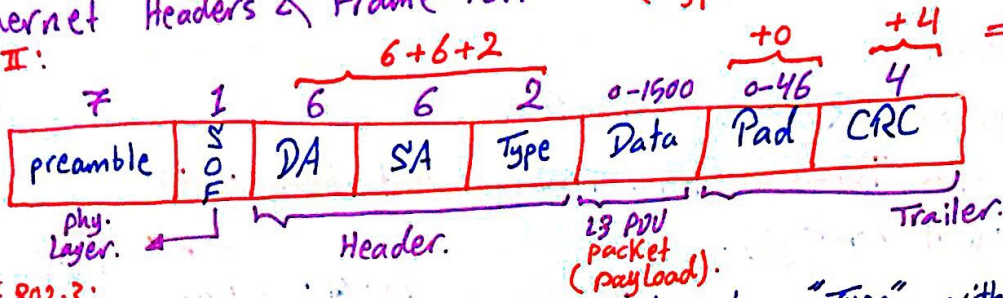 Headers & Frame
II:
6+6+2 +0 +4 =
7 1 6 6 2 0-1500 0-46 4
preamble SOF DA SA Type Data Pad CRC
phy. Layer. Header. L3 PDU packet (payload). Trailer:
802.3: "Type" with